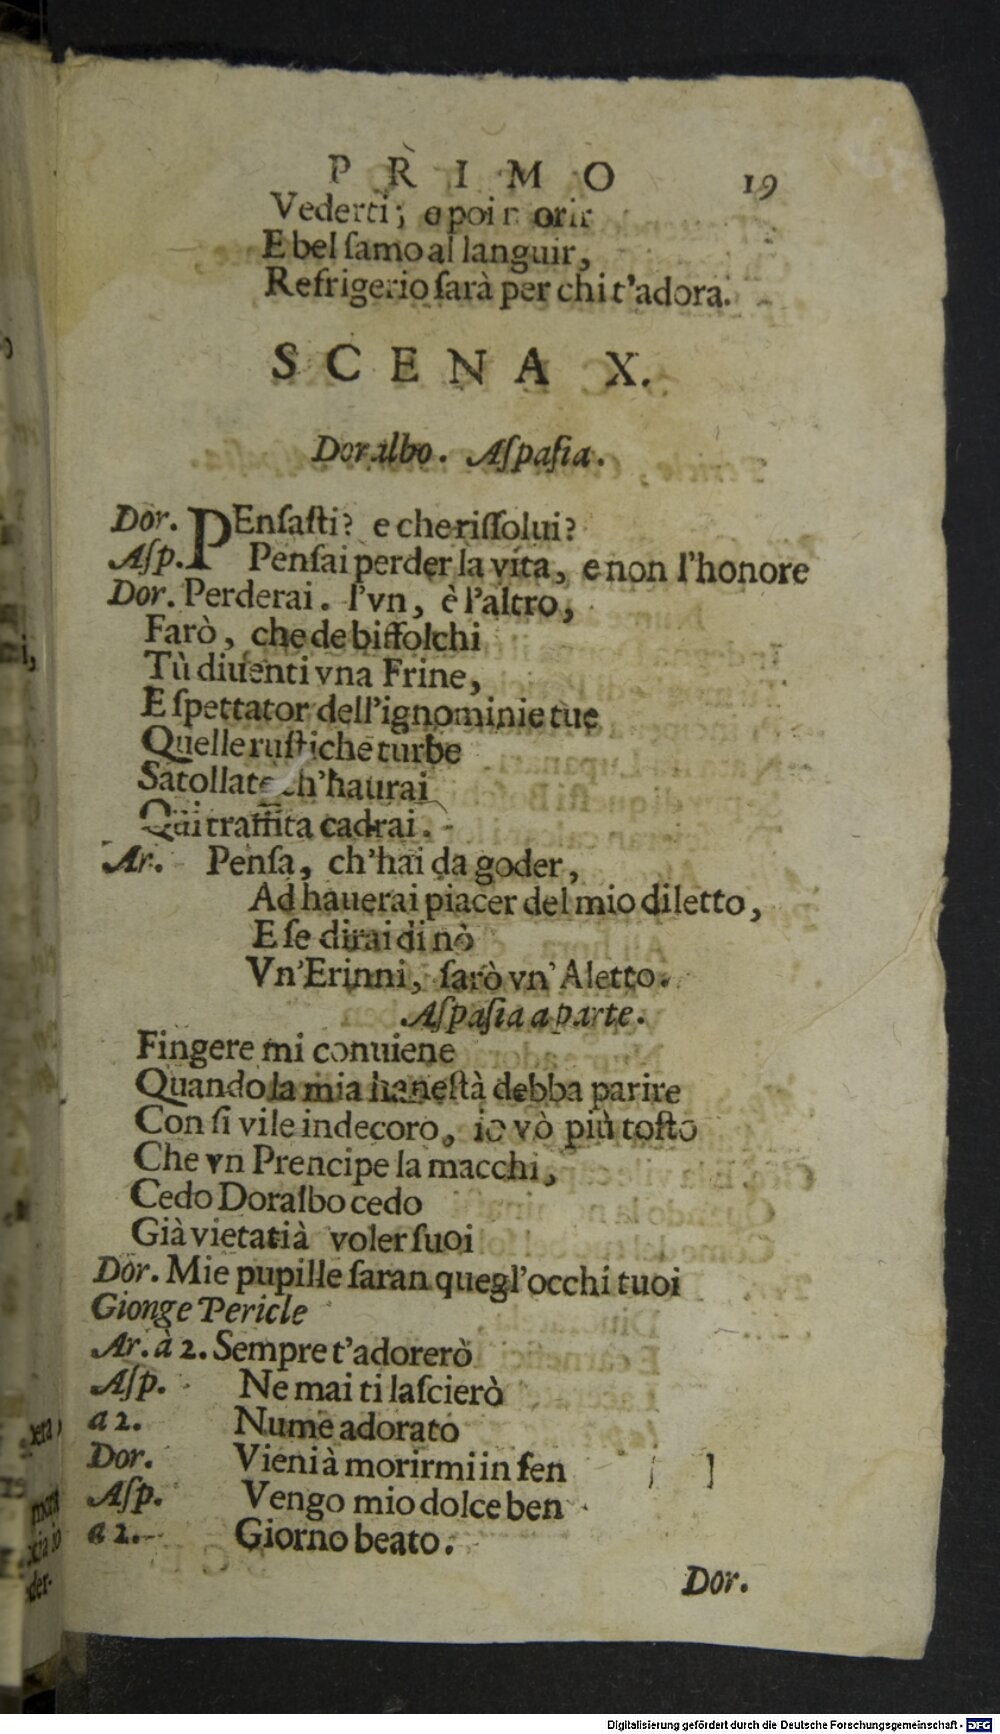 PRIMO 19
Vederti; e poi morir
E bel ſamo al languir,
Refrigerio ſarà per chi t'adora.
SCENA X.
Doralbo. Aſpaſia.
Dor. PEnſaſti? e che riſſolui?
Aſp. Penſai perder la vita, e non l'honore
Dor. Perderai. l'vn, è l'altro,
Farò, che de biffolchi
Tù diuenti vna Frine,
E ſpettator dell'ignominie tue
Quelle ruſtiche turbe
Satollate ch'haurai
Qui traffita cadrai.
Ar. Penſa, ch'hai da goder,
Ad hauerai piacer del mio diletto,
E ſe dirai di nò
Vn'Erinni, ſarò vn'Aletto.
Aſpaſia a parte.
Fingere mi conuiene
Quando la mia haneſtà debba parire
Con ſi vile indecoro, io vò più toſto
Che vn Prencipe la macchi,
Cedo Doralbo cedo
Già vietati à voler ſuoi
Dor. Mie pupille ſaran quegl'occhi tuoi
Gionge Pericle
Ar. à 2. Sempre t'adorerò
Aſp. Ne mai ti laſcierò
a 2. Nume adorato
Dor. Vieni à morirmi in ſen
Aſp. Vengo mio dolce ben
a 2. Giorno beato.
Dor.
Digitalisierung gefördert durch die Deutsche Forschungsgemeinschaft - DFG